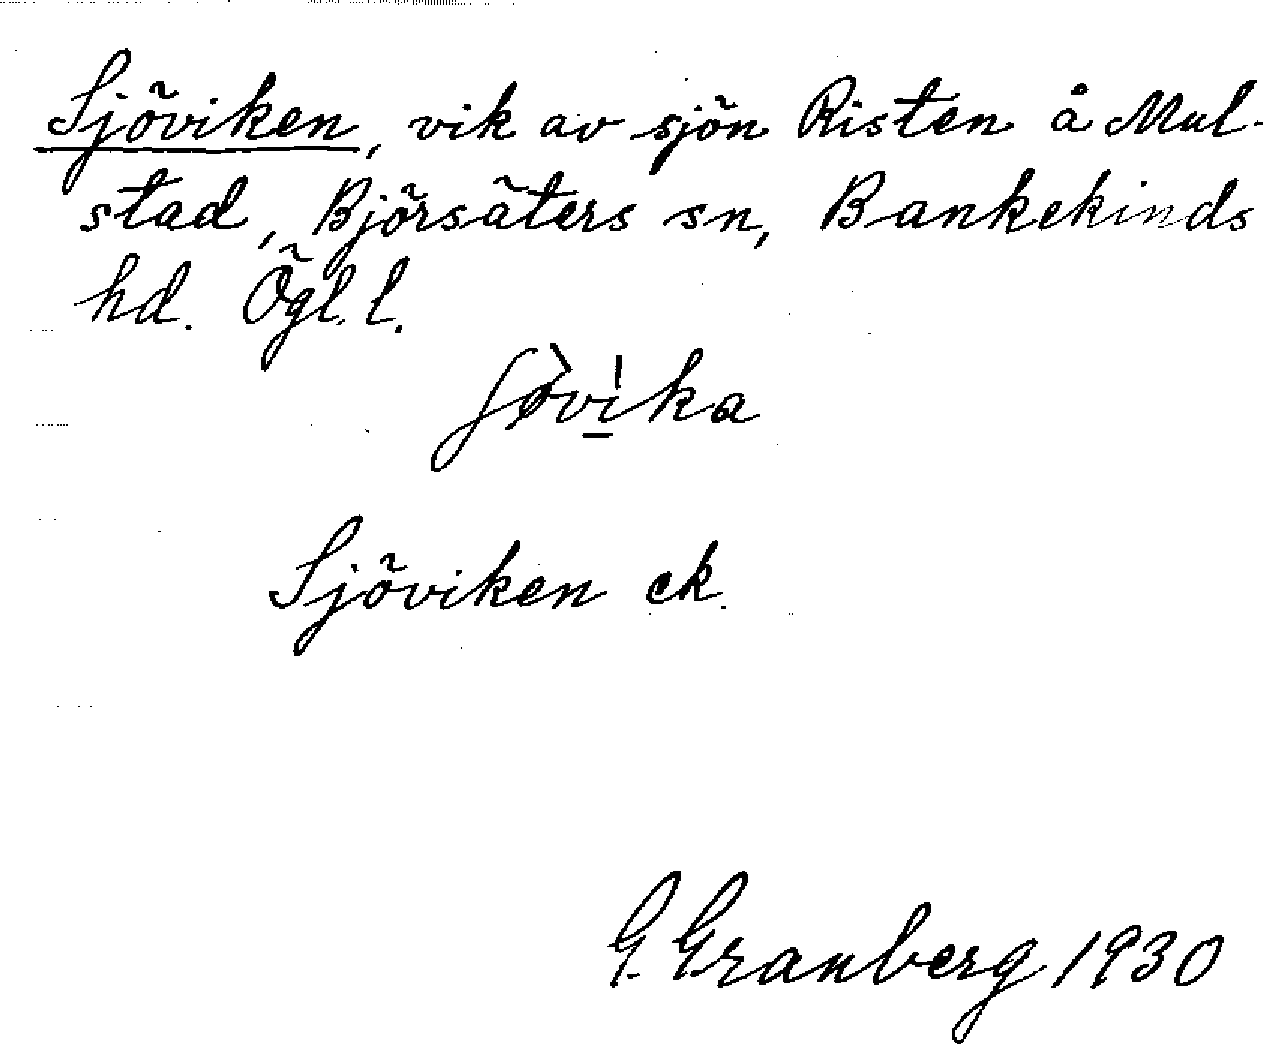 Sjöviken, vik av sjön Risten å Mul-
stad, Björsäters sn, Bankekinds
hd. Ögl. l.
ʃø̀vi̠̍ka
Sjöviken ek.
G. Granberg 1930